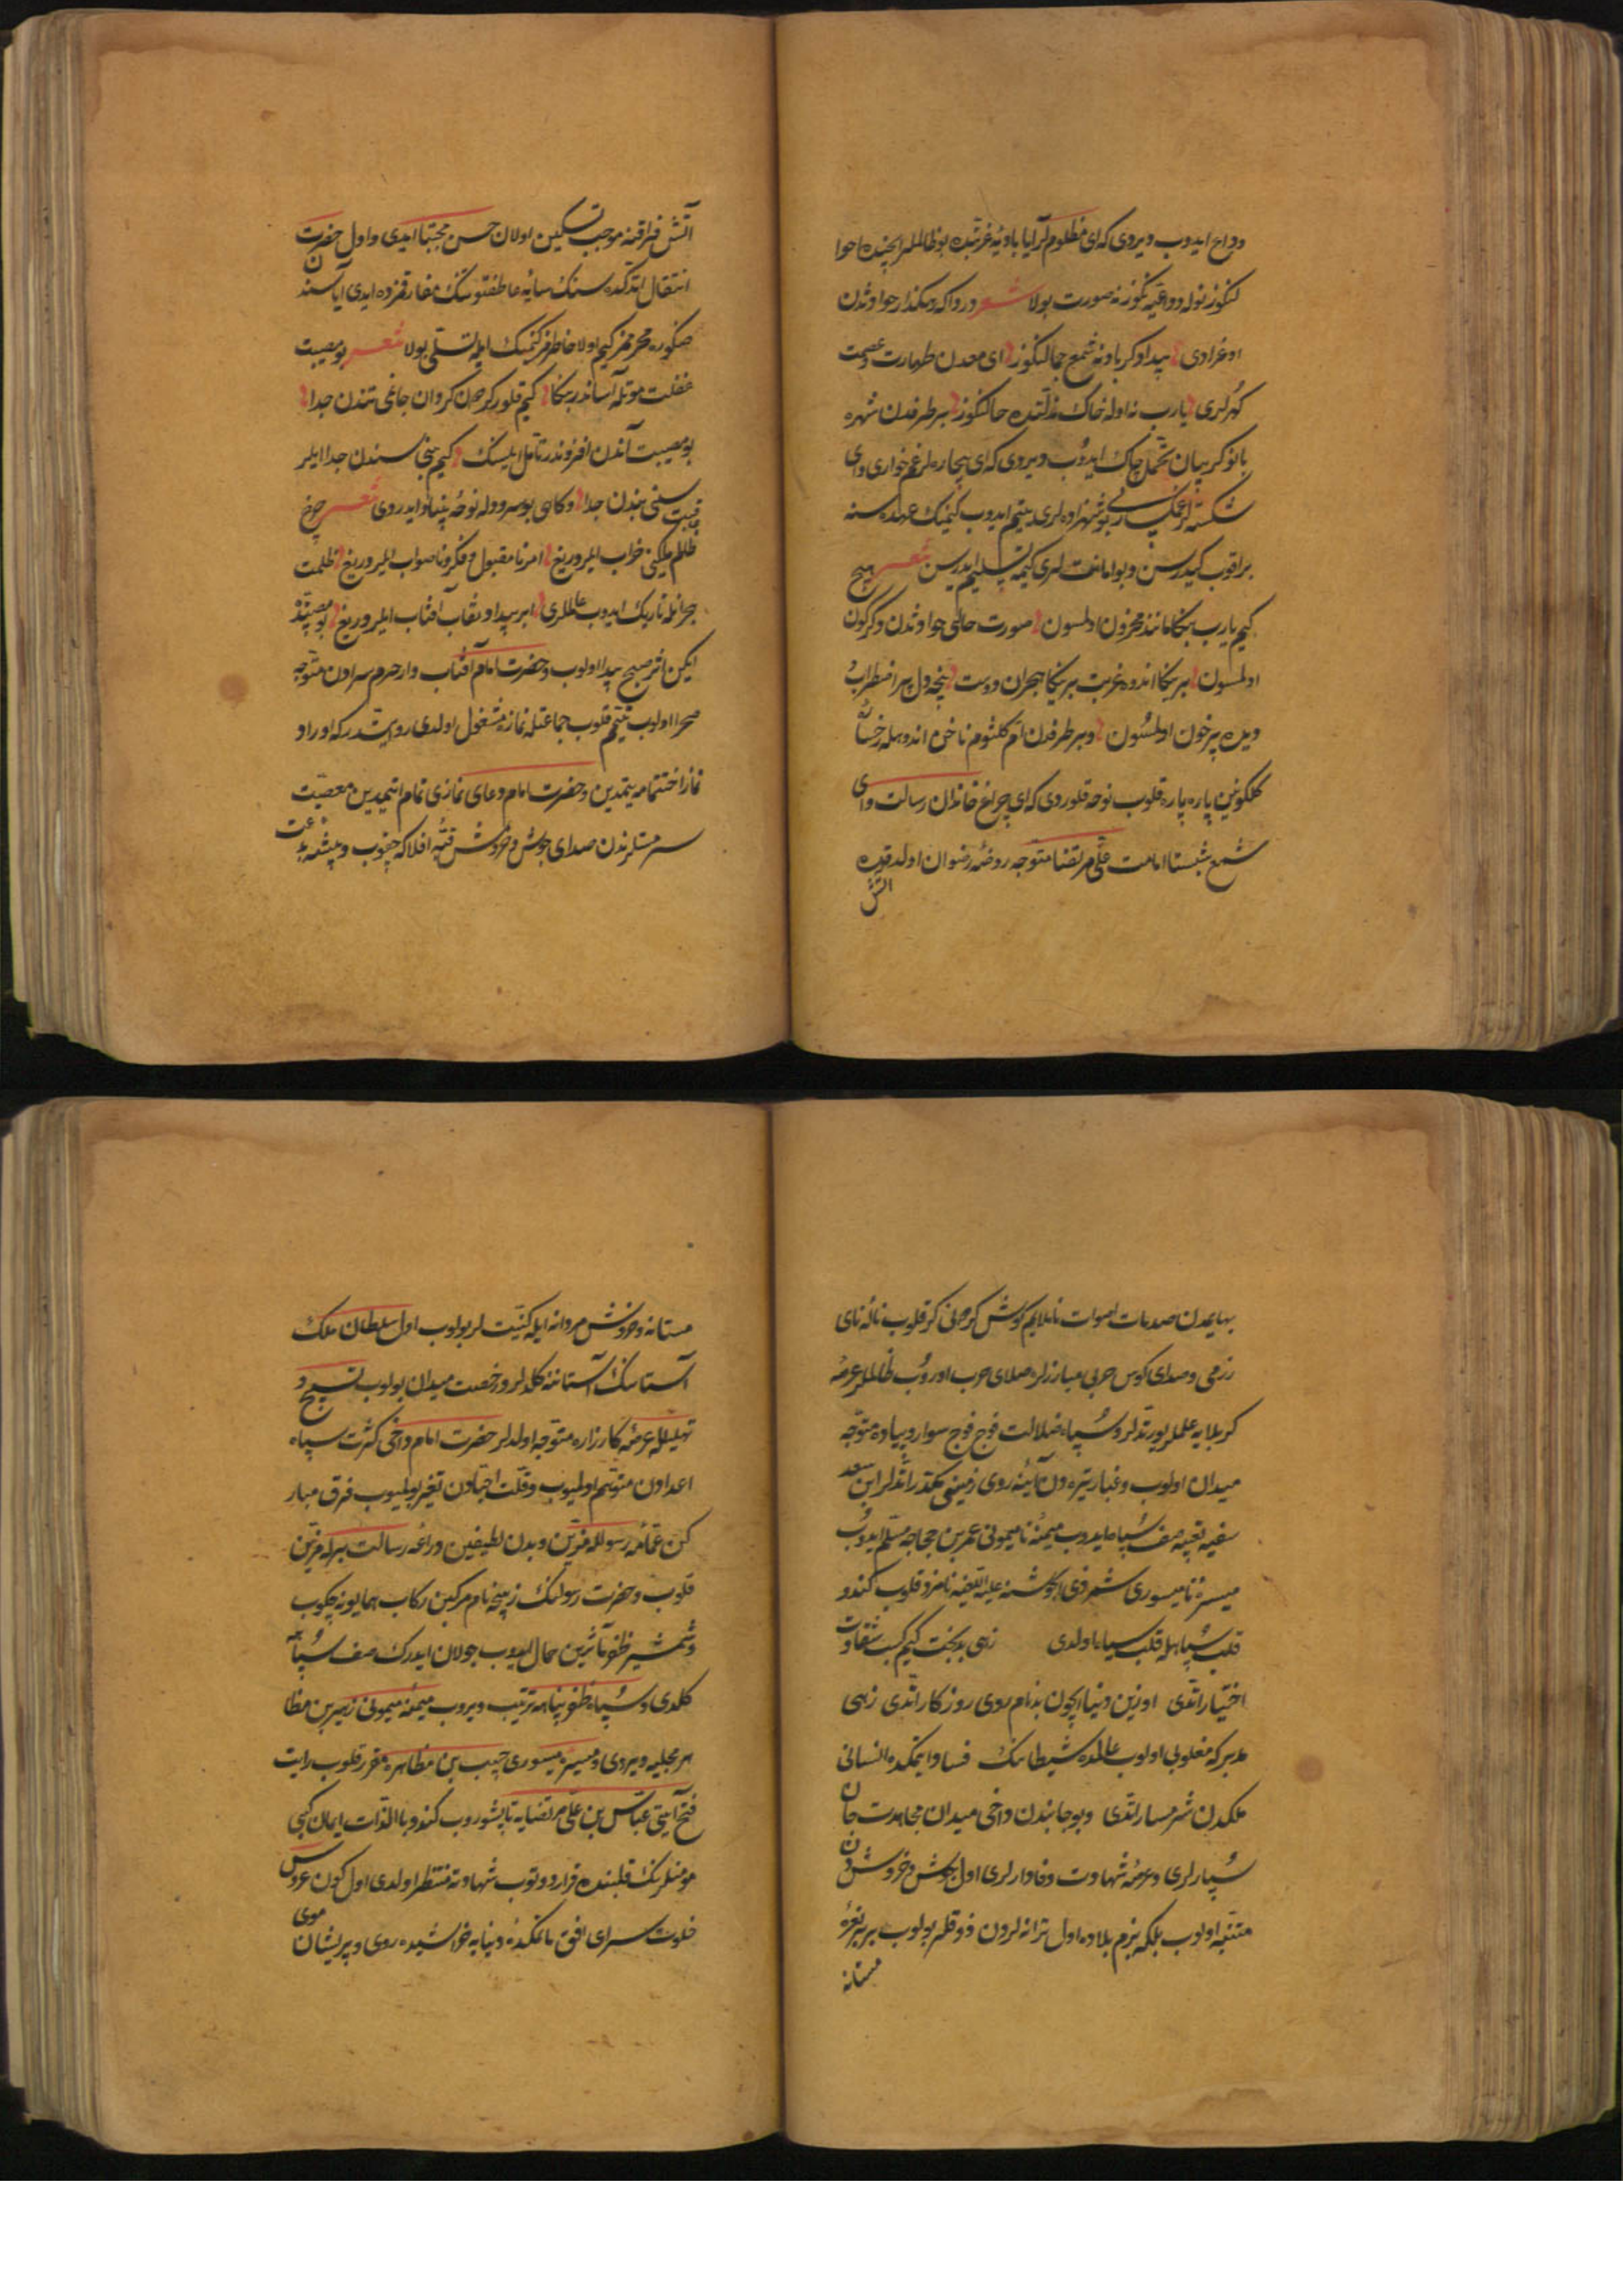 وداع ایدوب دیردی که ای مظلوملر آیا بادیهٔ غربتده بو ظالملر ایچنده احوا
لنکوز نوله و واقعه نکوز نه صورت بولا شعر درد اکه رهکذار حوادثدن
اوغرادی پیدا و کرباد نه شمع جمالنکوز ای معدن طهارت و عصمت
کهرلری یارب نه اوله خاک مذلتده حالنکوز بر طرفدن شهره
بانو کریبان تحمل چاک ایدوب دیردی که ای بیچاره لر غمخواری وای
شکسته لر غمکساری بو شهزاده لری یتیم ایدوب کیمک عهده سنه
براقوب کیدرسن و بو امانتلری کیمه تسلیم ایدرسن شعر هیچ
کیم یارب بنکا مانند محزون اولمسون صورت حالی حوادثدن دکرکون
اولمسون بر یکا اندوه غربت بر یکا هجران دوست نیجه دل پر اضطراب
دیده پر خون اولمسون و بر طرفدن ام کلثوم ناخن اندوهله رخسا
کلکونین پاره پاره قلوب نوحه قلوردی که ای چراغ خاندان رسالت وای
شمع شبستا امامت علی مرتضا متوجه روضهٔ رضوان اولدقده
آتش
آتش فراقنه موجب تسکین اولان حسن مجتبا ایدی و اول حضرت
انتقال اتدکده سنک سایهٔ عاطفتوینک مفارقمزده ایدی آیا سند
صکوره محرممز کیم اولا خاطرمز کیمک ایله تسلی بولا شعر بو مصیبت
غفلت موتله آساندر بنکا کیم قلور کرمدن کردان جانمی تندن جدا
بو مصیبت آندن افزوندر تامل ایلسک کیم بنی سندن جدا ایلر
سنی بندن جدا و کاهی بو سرودوله نوحهٔ بنیاد ایدردی شعر چرخ
ظلم ملکنی خراب ایلر دریغ امر نامقبول و فکر ناصواب ایلر دریغ ظلمت
هجرانله تاریک ایدوب عالملری ابر بیداد نقاب آفتاب ایلر دریغ بو مصیبتده
ایکن اثر صبح پیدا اولوب و حضرت امام آفتاب وار حرم سرادن متوجه
صحرا اولوب تیمم قلوب جماعتله نمازه مشغول اولدی روایتدر که اوراد
نماز اختتامه یتمدین و حضرت امام دعای نمازی تمام ایتمدین معصیت
سرمستلرندن صدای جوش و خروش قبهٔ افلاکه چقوب و بیشهٔ بدعت
بهایمدن صدمات اصوات ناملایم کوش کردونی کر قلوب نالهٔ نای
رزمی و صدای کوس حربی مبارزلره صلای حرب اوروب ظالملر عرصهٔ
کربلایه علملر یورتدلر و سپاه ضلالت فوج فوج سوار و پیاده متوجه
میدان اولوب و غبار تیره دن آیینهٔ روی زمینی مکدر اتدلر ابن سعد
سفیه تعبیهٔ صف سپاه ایدوب میمنهٔ نامیمونی عمر بن حجاجه مسلم ایدوب
میسرهٔ نامیسوری شمر ذی الجوشنه علیه اللعنه نامزد قلوب کندو
قلب سپاهله قلب سپاه اولدی زهی بدبخت کیم کسب شقاوت
اختیار اتدی اوزین دنیا ایچون بدنام روی روزکار اتدی زهی
مدبر که مغلوبی اولوب عالمده شیطانک فساد ایتمکده انسانی
ملکدن شرمسار اتدی و بو جانبدن داخی میدان مجاهدت جان
سپارلری و عرصهٔ شهادت وفادارلری اول جوش و خروشدن
متنبه اولوب بلکه بزم بلاده اول ترانه لردن ذوقلر بولوب بربر نعرهٔ
مستانه
مستانه و خروش مردانه ایله کنیت لر بولوب اول سلطان ملک
آستانک آستاننه کلدلر و رخصت میدان بولوب تسبیح و
تهلیلله عرصهٔ کارزاره متوجه اولدلر حضرت امام داخی کثرت سپاه
اعدادن متوهم اولمیوب و قلت احبادن تغیر بولمیوب فرق مبار
کن عمامهٔ رسولله مزین و بدن لطیفین دراعهٔ رسالت برله مزین
قلوب و حضرت رسولنک ز پیچه نام مرکبین رکاب همایونه چکوب
و شمشیر ظفر تاثیرین حمال ایدوب جولان ایدرک صف سپاهه
کلدی و سپاه ظفر پناهه ترتیب ویروب میمنهٔ میمونی زهیر بن مظا
هر بجلیه ویردی و میسرهٔ میسوری حبیب بن مظاهره مقرر قلوب رایت
فتح آیتی عباس بن علی مرتضایه تاپشوروب کندو باالذات ایمان کبی
مومنلرنک قلبنده قرار دوتوب شهادته منتظر اولدی اول کون عروس
خلوت سرای افق ماتمکدهٔ دنیایه خراشیده روی و پریشان موی